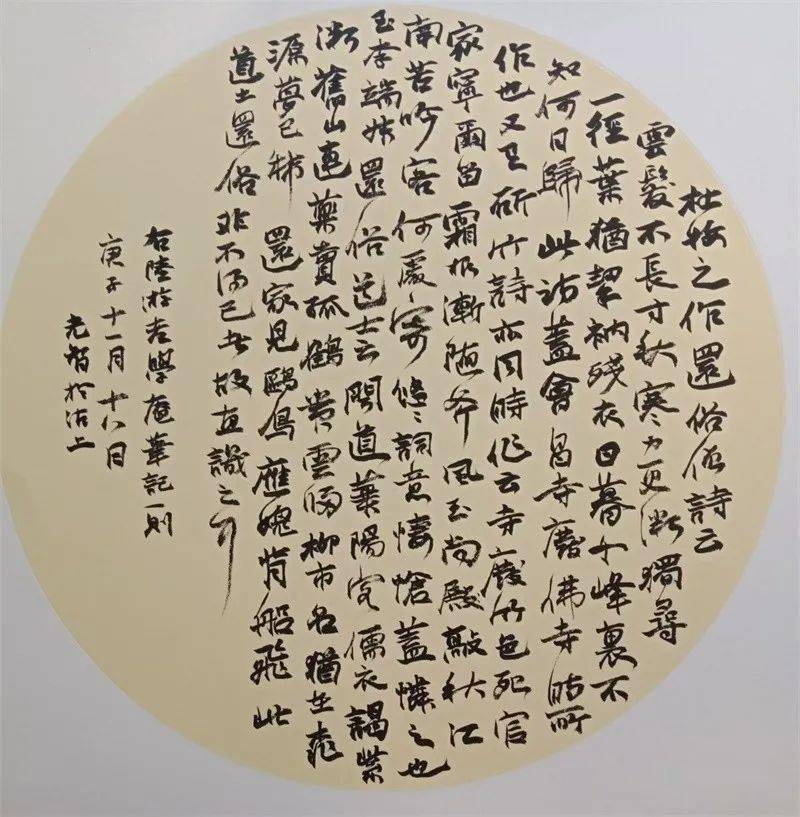 杜牧之作還俗僧詩云
雲髮不長寸秋寒力更微獨尋
一徑葉猶挈衲殘衣日暮千峰裏不
知何日歸此詩蓋會昌寺廢佛寺時所
作也又有斫竹詩亦同時作云寺廢竹色死官
家寧爾留霜根漸隨斧風玉尚殿敲秋江
南苦吟客何處寄悠悠詞意悽愴蓋憐之也
至李端還俗道士云聞道華陽客儒衣謁紫
微舊山連藥賣孤鶴帶雲歸柳市名猶在桃
源夢已稀還家見鷗鳥應愧背船飛此
道士還俗非不得已者故直譏之耳
右陸游老學庵筆記一則
庚子十一月十八日
智於沽上